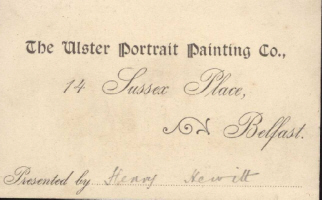 The Ulster Portrait Painting Co.,
14 Sussex Place,
Belfast.
Presented by Henry Hewitt